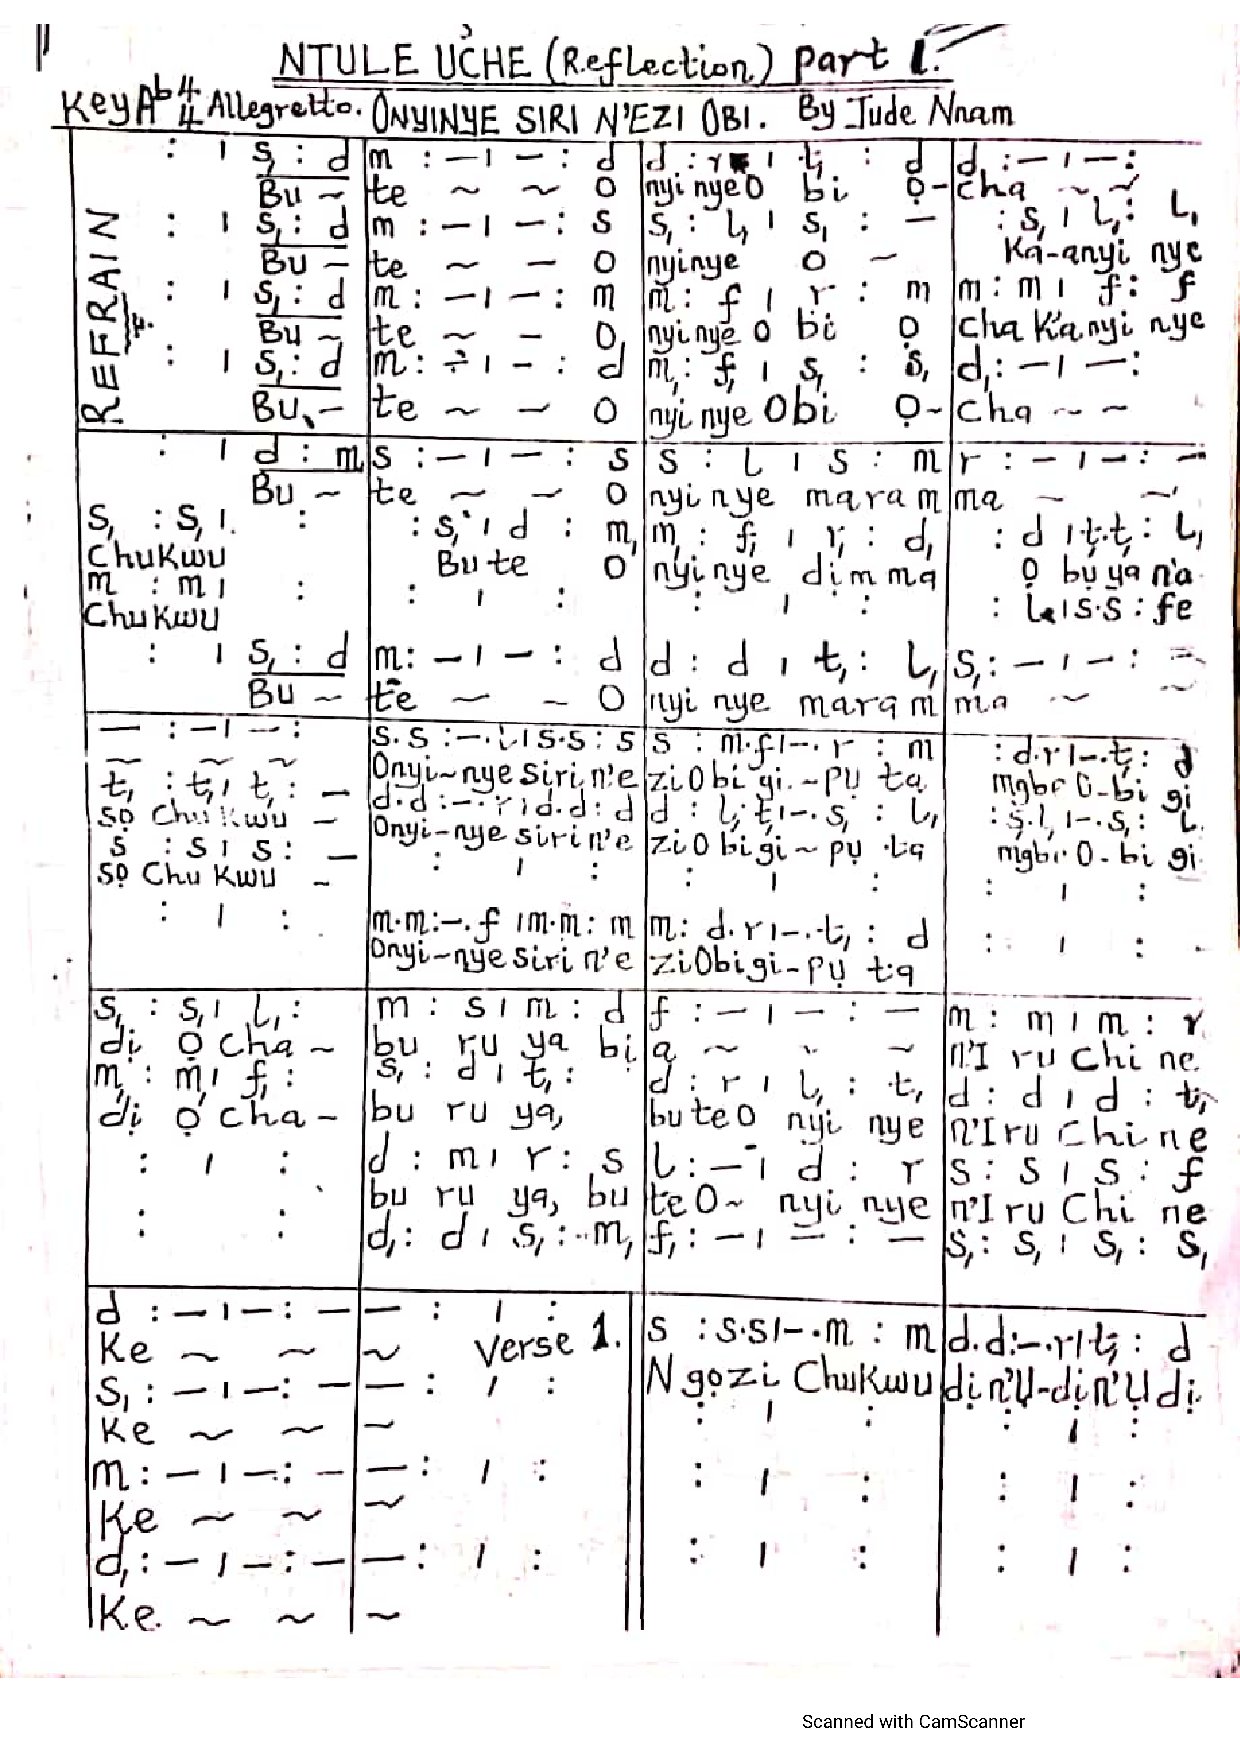 NTULE UCHE (Reflection) Part 1.
Key Ab 4/4 Allegretto. ONYINYE SIRI N'EZI OBI. By Jude Nnam
REFRAIN
: | s, : d m : – | – : d d : r | t, : d d : – | – :
Bu ~ te ~ ~ O nyi nye O bi ọ- cha ~ ~
: | s, : d m : – | – : s s, : l, | s, : – : s, | l, : l,
Bu – te ~ – O nyinye O – Ka-anyi nye
: | s, : d m : – | – : m m : f | r : m m : m | f : f
Bu ~ te ~ – O nyi nye O bi ọ cha Ka'nyi nye
: | s, : d m : – | – : d m, : f, | s, : s, d, : – | – :
Bu – te ~ ~ O nyi nye Obi ọ- cha ~ ~
: | d : m s : – | – : s s : l | s : m r : – | – : –
Bu ~ te ~ ~ O nyi nye maram ma ~ ~
s, : s, | : : s, | d : m, m, : f, | r, : d, : d | t,.t, : l,
Chukwu Bu te O nyi nye dim ma Ọ bụ ya n'a
m : m | : : | : : | : : l | s.s : fe
Chukwu
: | s, : d m : – | – : d d : d | t, : l, s, : – | – : –
Bu ~ te ~ ~ O nyi nye maram ma ~ ~
– : – | – : s.s : –.l | s.s : s s : m.f | –.r : m : d.r | –.t, : d
~ ~ ~ Onyi~nye siri n'e zi Obi gi.-pụ ta mgbe O-bi gi
t, : t, | t, : – d.d : –.r | d.d : d d : l,.t, | –.s, : l, : s,.l, | –.s, : l,
sọ Chukwu – Onyi-nye siri n'e zi O bi gi ~ pụ ta mgbe O-bi gi
s : s | s : – : | : : | : : | :
sọ Chu Kwu –
: | : m.m : –.f | m.m : m m : d.r | –.t, : d : | :
Onyi-nye siri n'e zi Obi gi-pụ ta
s, : s, | l, : m : s | m : d f : – | – : – m : m | m : r
dị ọ cha ~ bu ru ya bi a ~ ~ ~ n'I ru Chi ne
m, : m, | f, : s, : d | t, : d : r | l, : t, d : d | d : t,
dị ọ cha – bu ru ya, bu te O nyi nye n'I ru Chi ne
: | : d : m | r : s l : – | d : r s : s | s : f
bu ru ya, bu te O~ nyi nye n'I ru Chi ne
: : d, : d | s, : m, f, : – | – : – s, : s, | s, : s,
d : – | – : – – : | : s : s.s | –.m : m d.d : –.r | t, : d
Ke ~ ~ ~ Verse 1. Ngọzi Chukwu dị n'Ụ-dị n'Ụ dị
s, : – | – : – – : | : : | : : | :
Ke ~ ~ ~
m : – | – : – – : | : : | : : | :
Ke ~ ~ ~
d, : – | – : – – : | : : | : : | :
Ke. ~ ~ ~
Scanned with CamScanner